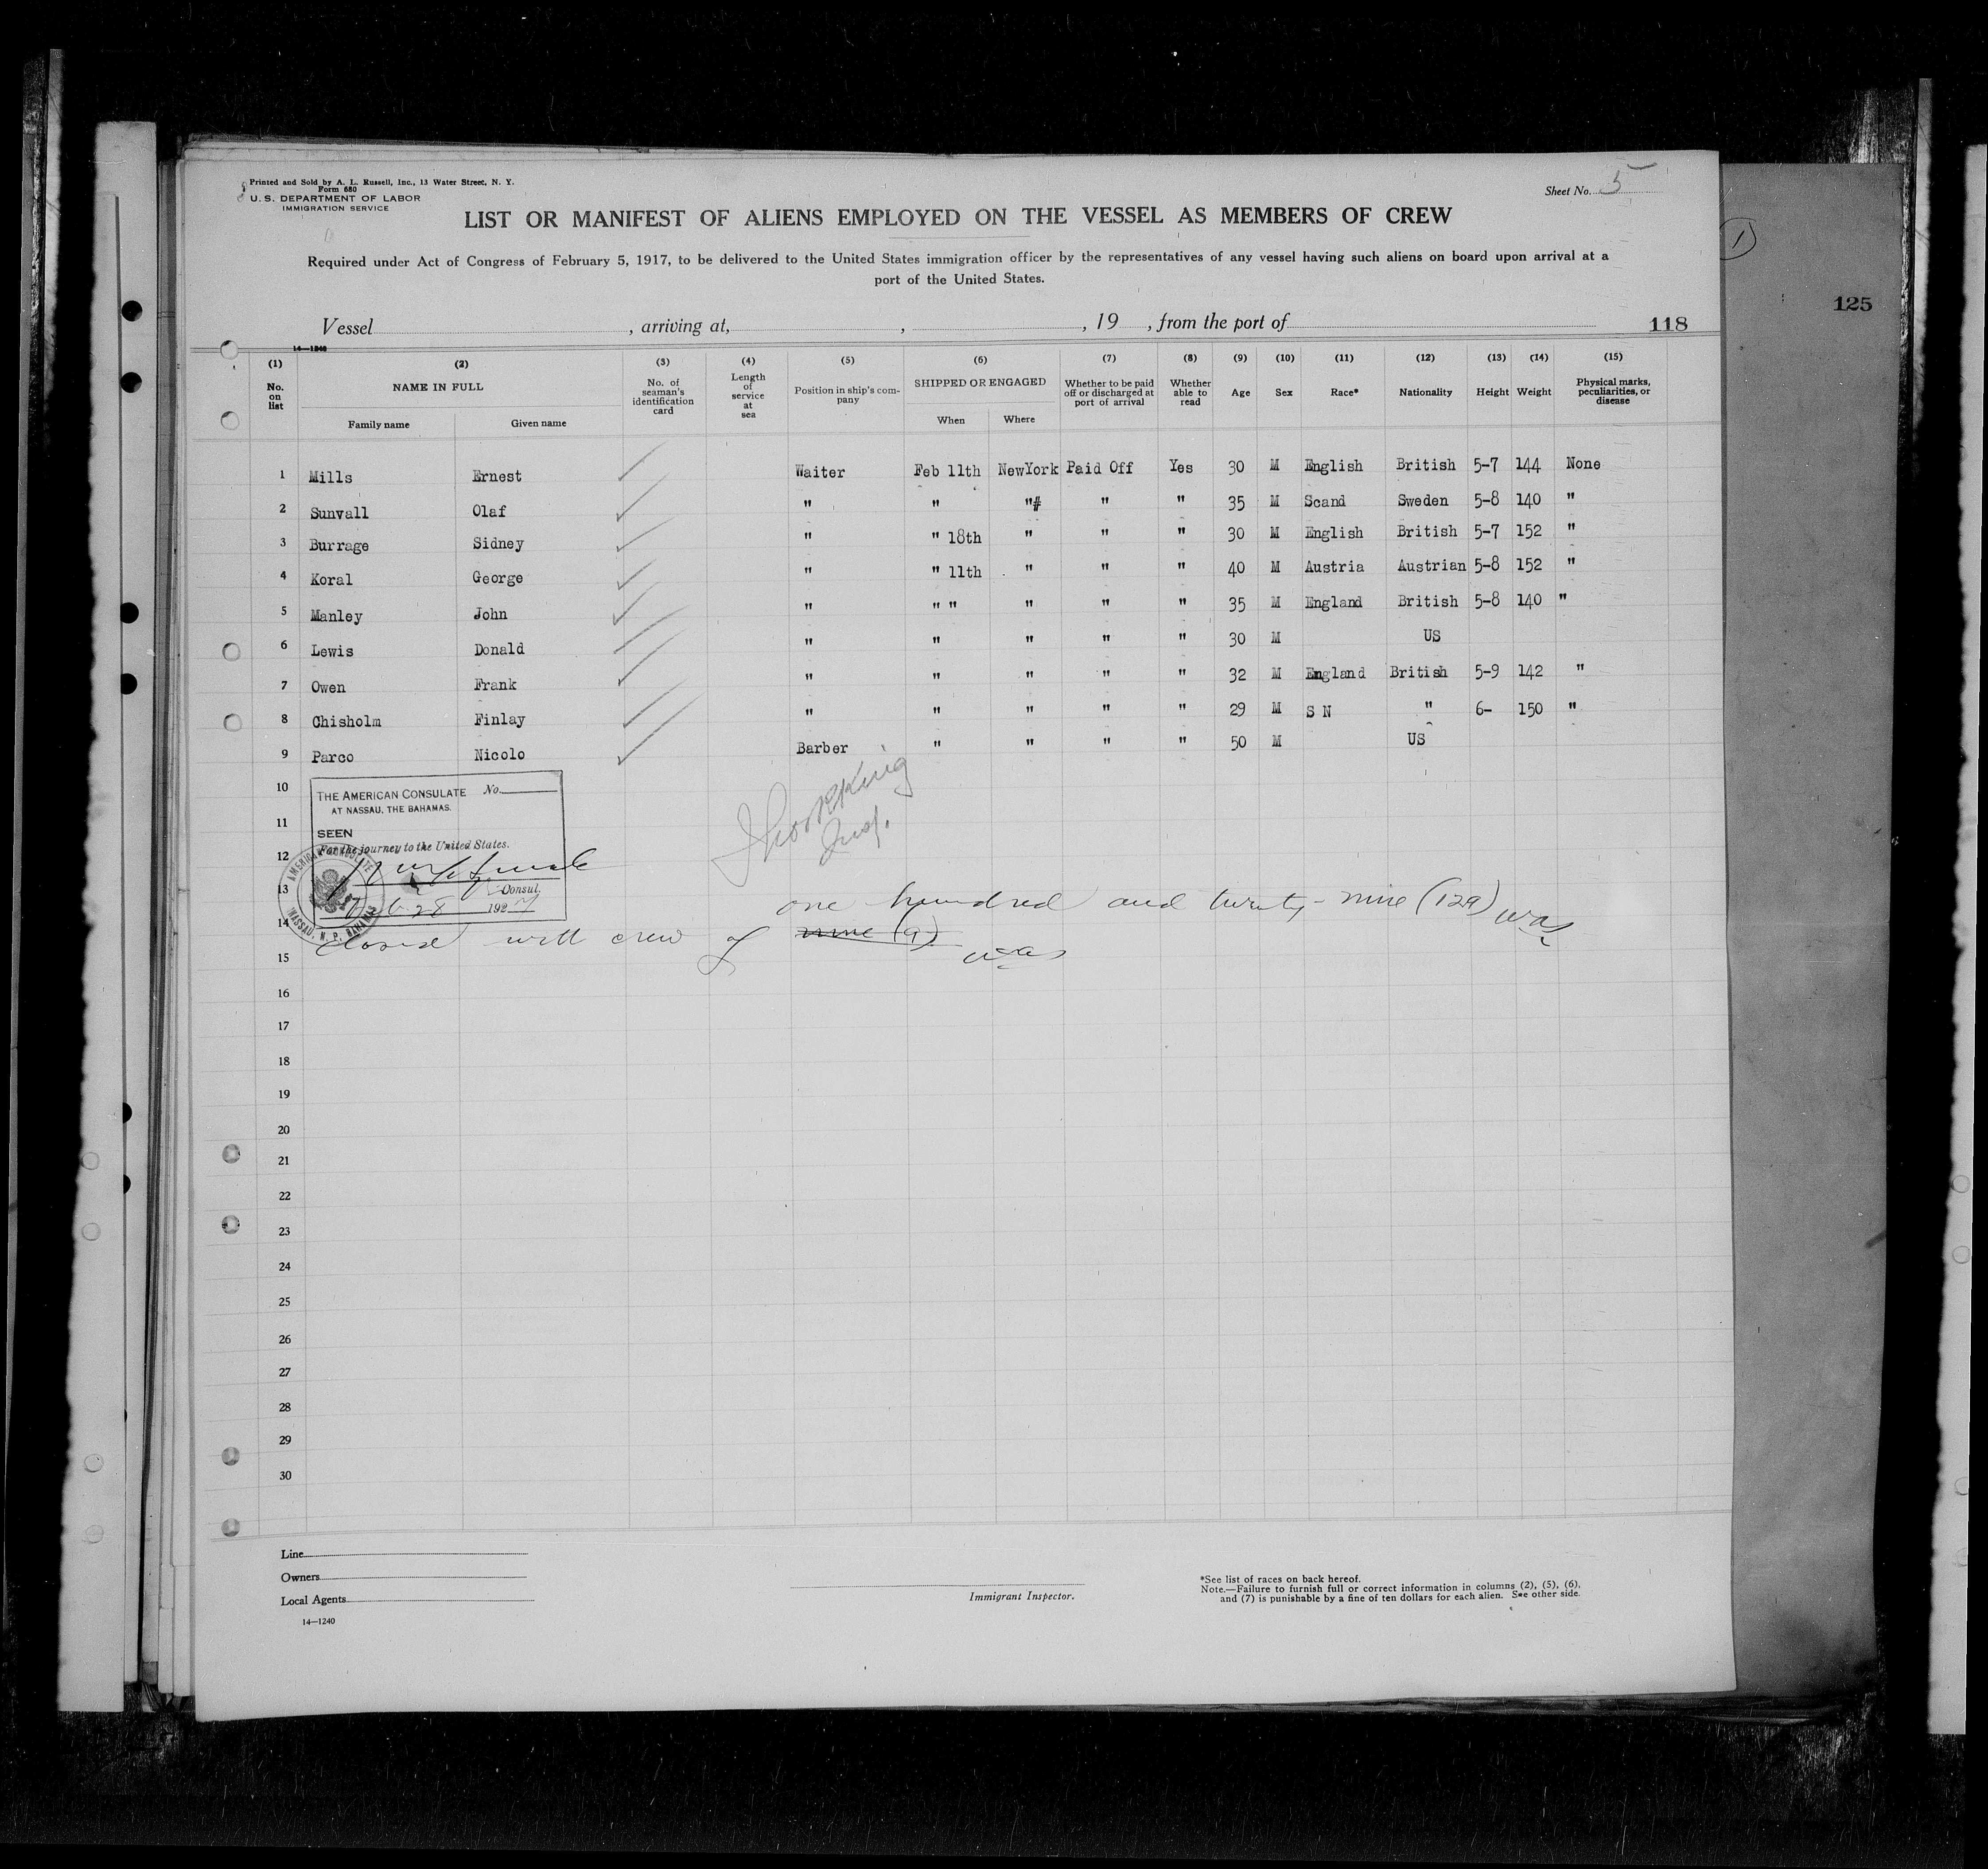 Printed and Sold by A. L. Russell, Inc., 13 Water Street, N. Y.
Form 680
U. S. DEPARTMENT OF LABOR
IMMIGRATION SERVICE
Sheet No. 5
LIST OR MANIFEST OF ALIENS EMPLOYED ON THE VESSEL AS MEMBERS OF CREW
Required under Act of Congress of February 5, 1917, to be delivered to the United States immigration officer by the representatives of any vessel having such aliens on board upon arrival at a
port of the United States.
1
125
Vessel , arriving at, , , 19 , from the port of
118
14—1240
(1) No. on list
(2) NAME IN FULL
Family name Given name
(3) No. of seaman's identification card
(4) Length of service at sea
(5) Position in ship's company
(6) SHIPPED OR ENGAGED
When Where
(7) Whether to be paid off or discharged at port of arrival
(8) Whether able to read
(9) Age
(10) Sex
(11) Race*
(12) Nationality
(13) Height
(14) Weight
(15) Physical marks, peculiarities, or disease
1 Mills Ernest Waiter Feb 11th NewYork Paid Off Yes 30 M English British 5-7 144 None
2 Sunvall Olaf " " "# " " 35 M Scand Sweden 5-8 140 "
3 Burrage Sidney " " 18th " " " 30 M English British 5-7 152 "
4 Koral George " " 11th " " " 40 M Austria Austrian 5-8 152 "
5 Manley John " " " " " " 35 M England British 5-8 140 "
6 Lewis Donald " " " " " 30 M US
7 Owen Frank " " " " " 32 M England British 5-9 142 "
8 Chisholm Finlay " " " " " 29 M S N " 6- 150 "
9 Parco Nicolo Barber " " " " 50 M US
10
11
12
13
14
15
16
17
18
19
20
21
22
23
24
25
26
27
28
29
30
THE AMERICAN CONSULATE No.
AT NASSAU, THE BAHAMAS.
SEEN
For the journey to the United States.
Consul.
Feb. 28 1927
AMERICAN CONSULATE
NASSAU, N. P. BAHAMAS
King
Insp.
one hundred and twenty-nine (129)
closed with crew of nine (9)
Line
Owners
Local Agents
14—1240
Immigrant Inspector.
*See list of races on back hereof.
Note.—Failure to furnish full or correct information in columns (2), (5), (6),
and (7) is punishable by a fine of ten dollars for each alien. See other side.